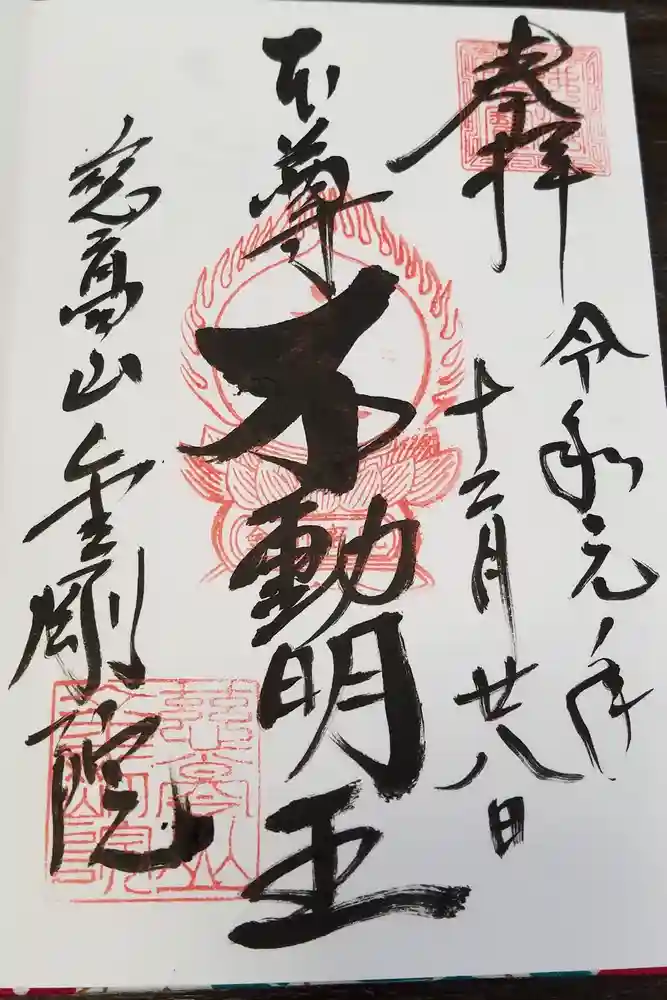 奉拝
令和元年
十二月廿八日
本尊
不動明王
慈高山金剛院
慈高山
金剛院